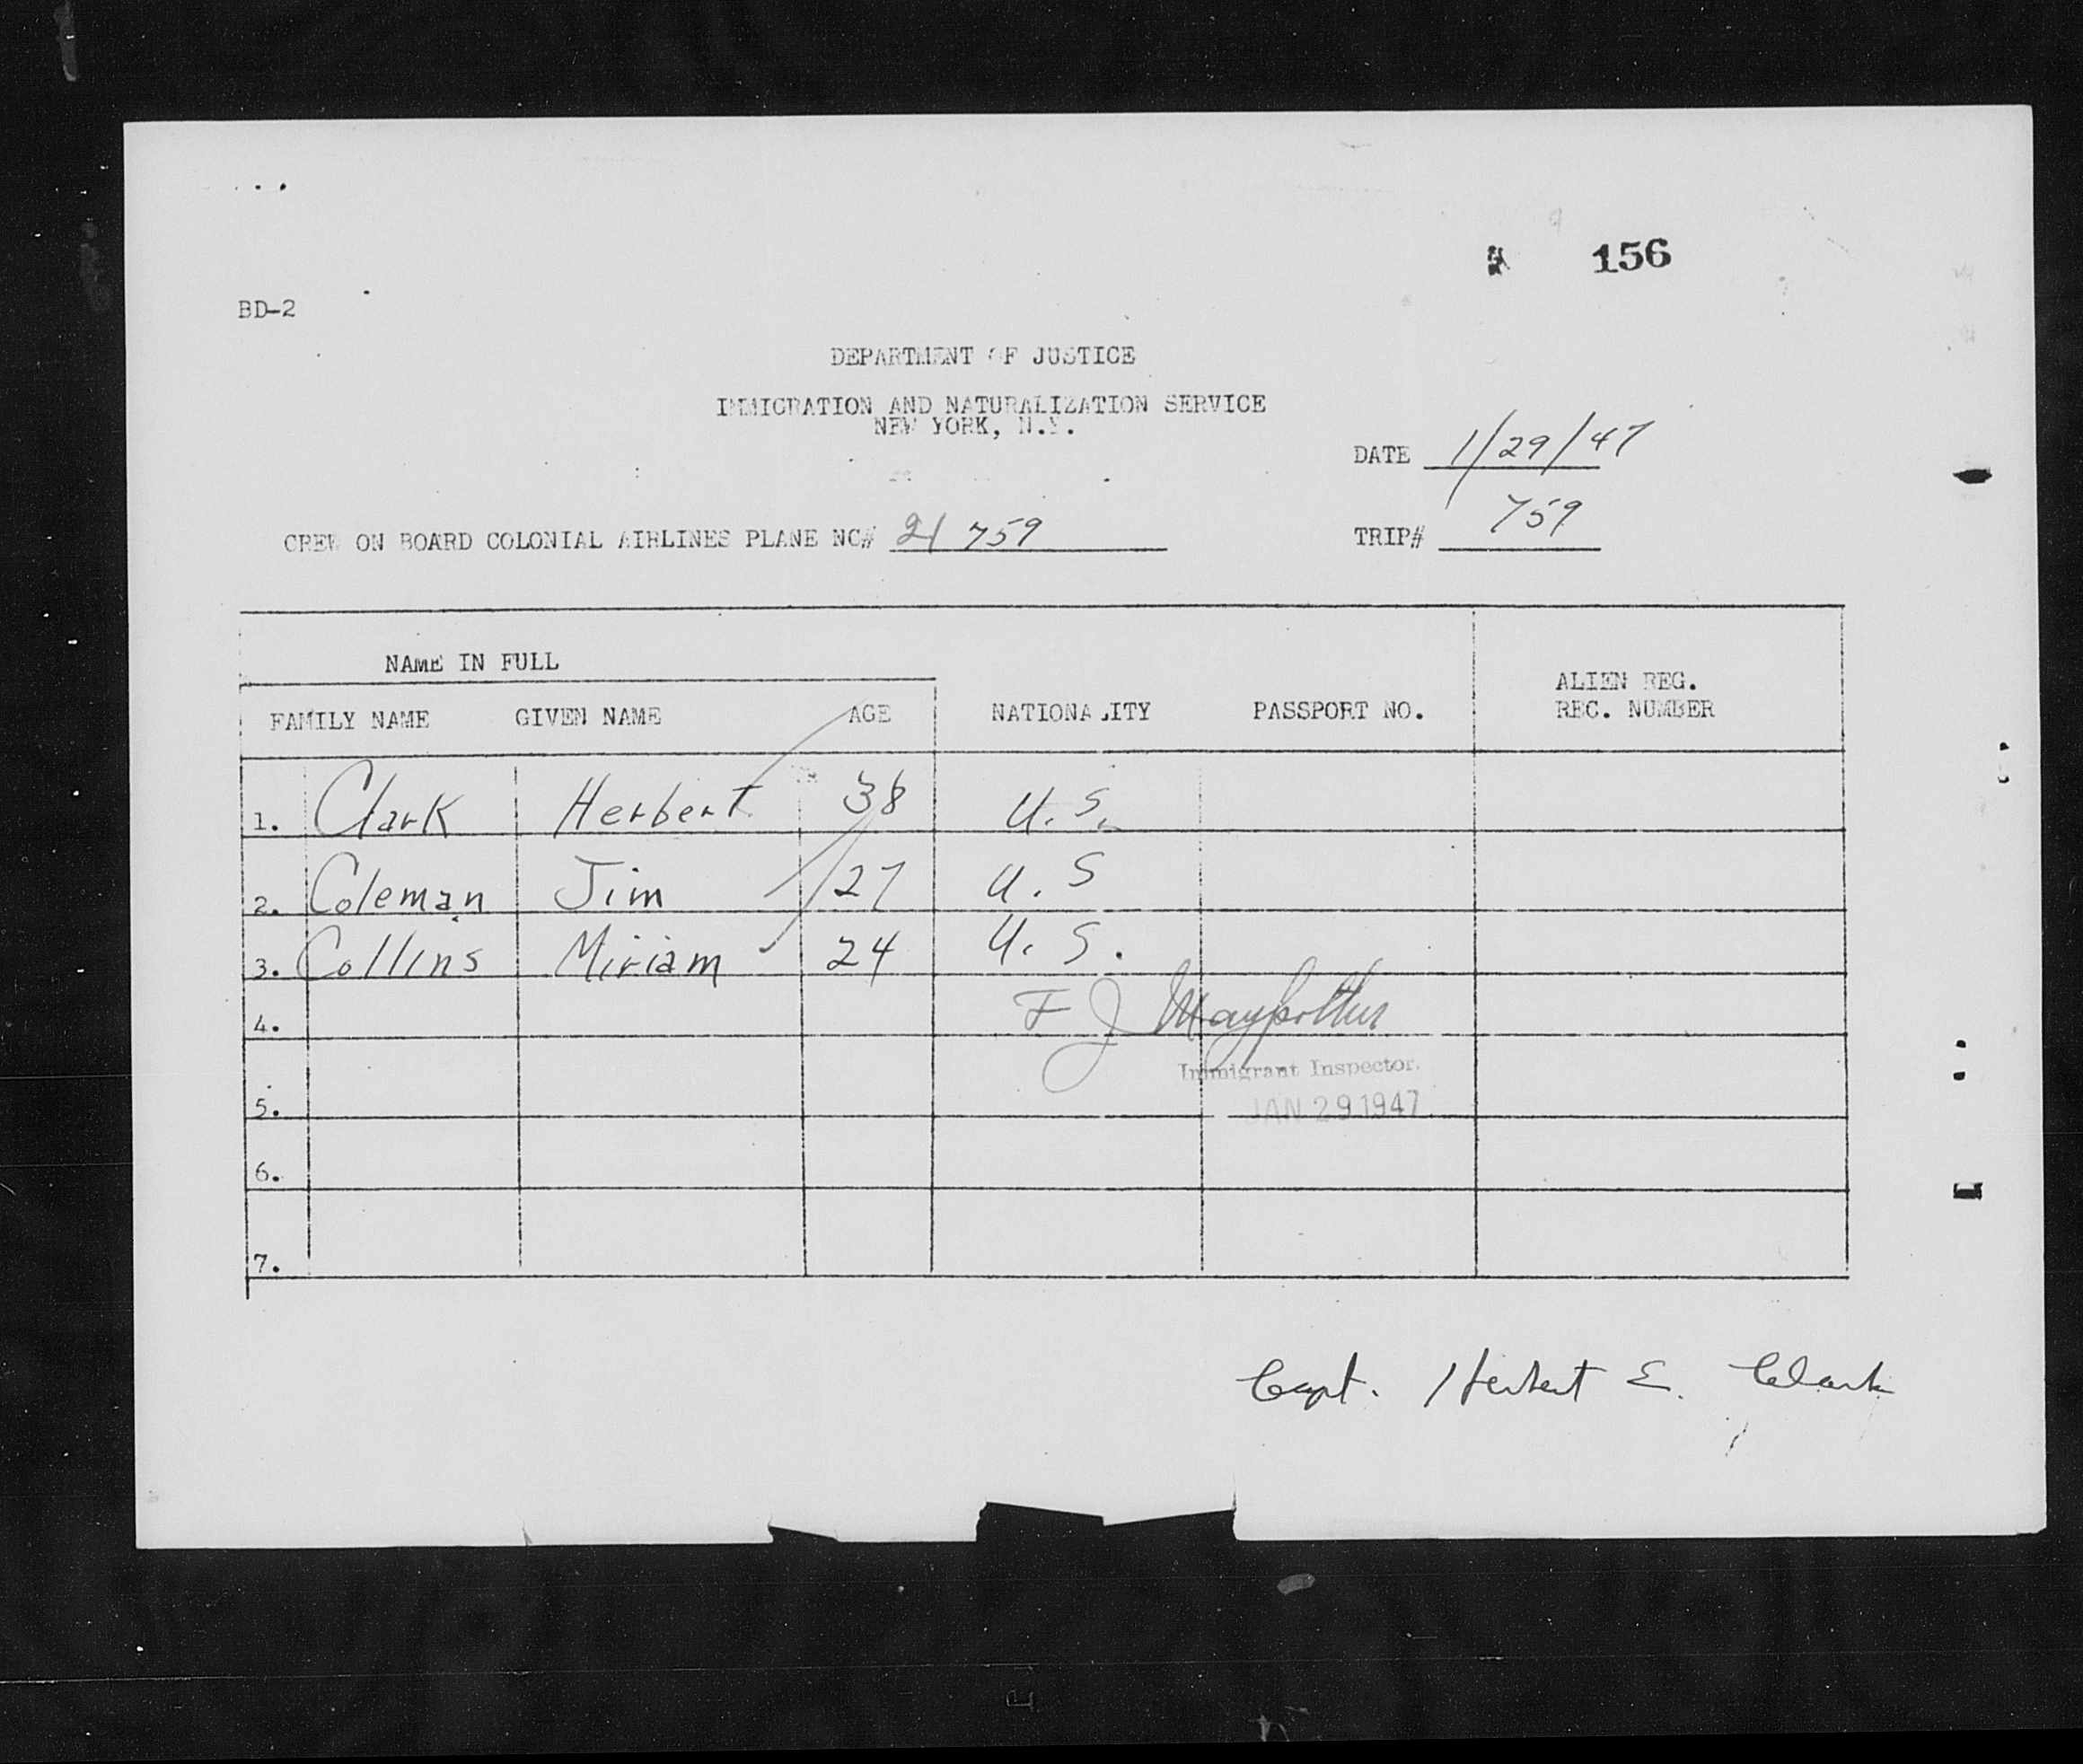 156
BD-2
DEPARTMENT OF JUSTICE
IMMIGRATION AND NATURALIZATION SERVICE
NEW YORK, N.Y.
DATE 1/29/47
CREW ON BOARD COLONIAL AIRLINES PLANE NC# 21759
TRIP# 759
NAME IN FULL
FAMILY NAME GIVEN NAME AGE NATIONALITY PASSPORT NO. ALIEN REG. REC. NUMBER
1. Clark Herbert 38 U.S.
2. Coleman Jim 27 U.S
3. Collins Miriam 24 U.S.
4. F J
Immigrant Inspector.
5. JAN 29 1947
6.
7.
Capt. Herbert E. Clark